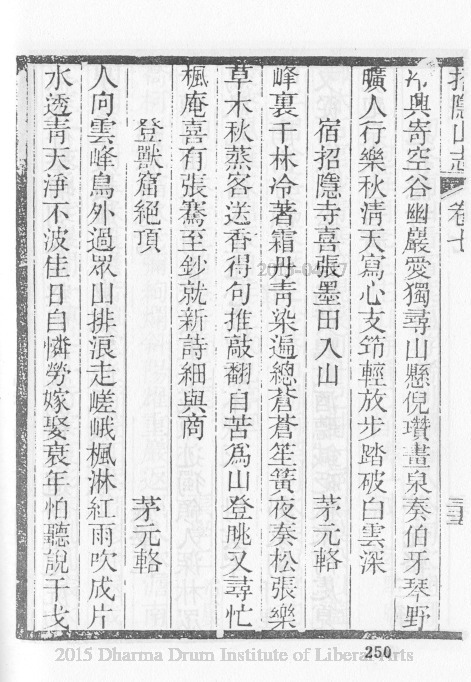 招隱山志 卷七
興寄空谷幽巖愛獨尋山懸倪瓚畫泉奏伯牙琴野
曠人行樂秋淸天寫心支筇輕放步踏破白雲深
宿招隱寺喜張墨田入山 茅元輅
峰裏千林冷著霜丹靑染遍總蒼蒼笙簧夜奏松張樂
草木秋蒸客送香得句推敲翻自苦爲山登眺又尋忙
楓庵喜有張騫至鈔就新詩細與商
登獸窟絕頂 茅元輅
人向雲峰鳥外過眾山排浪走嵯峨楓淋紅雨吹成片
水透靑天淨不波佳日自憐勞嫁娶衰年怕聽說干戈
250
2015 Dharma Drum Institute of Liberal Arts